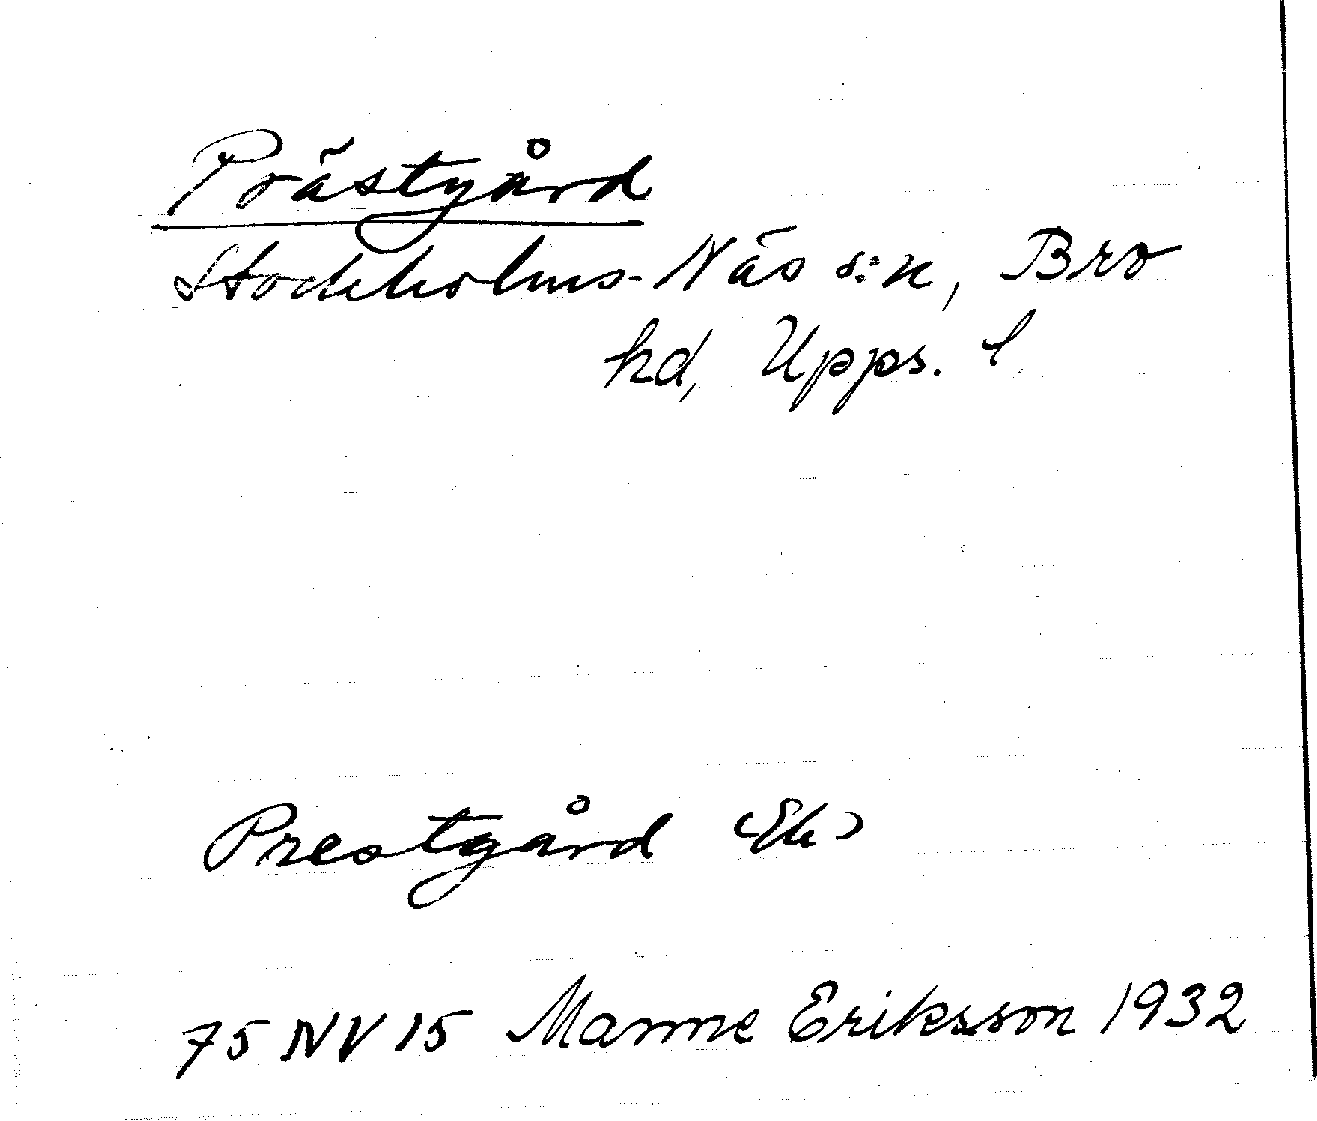 Prästgård
Stockholms-Näs s:n, Bro
hd, Upps. l
Prestgård (Ek)
75 NV 15 Manne Eriksson 1932